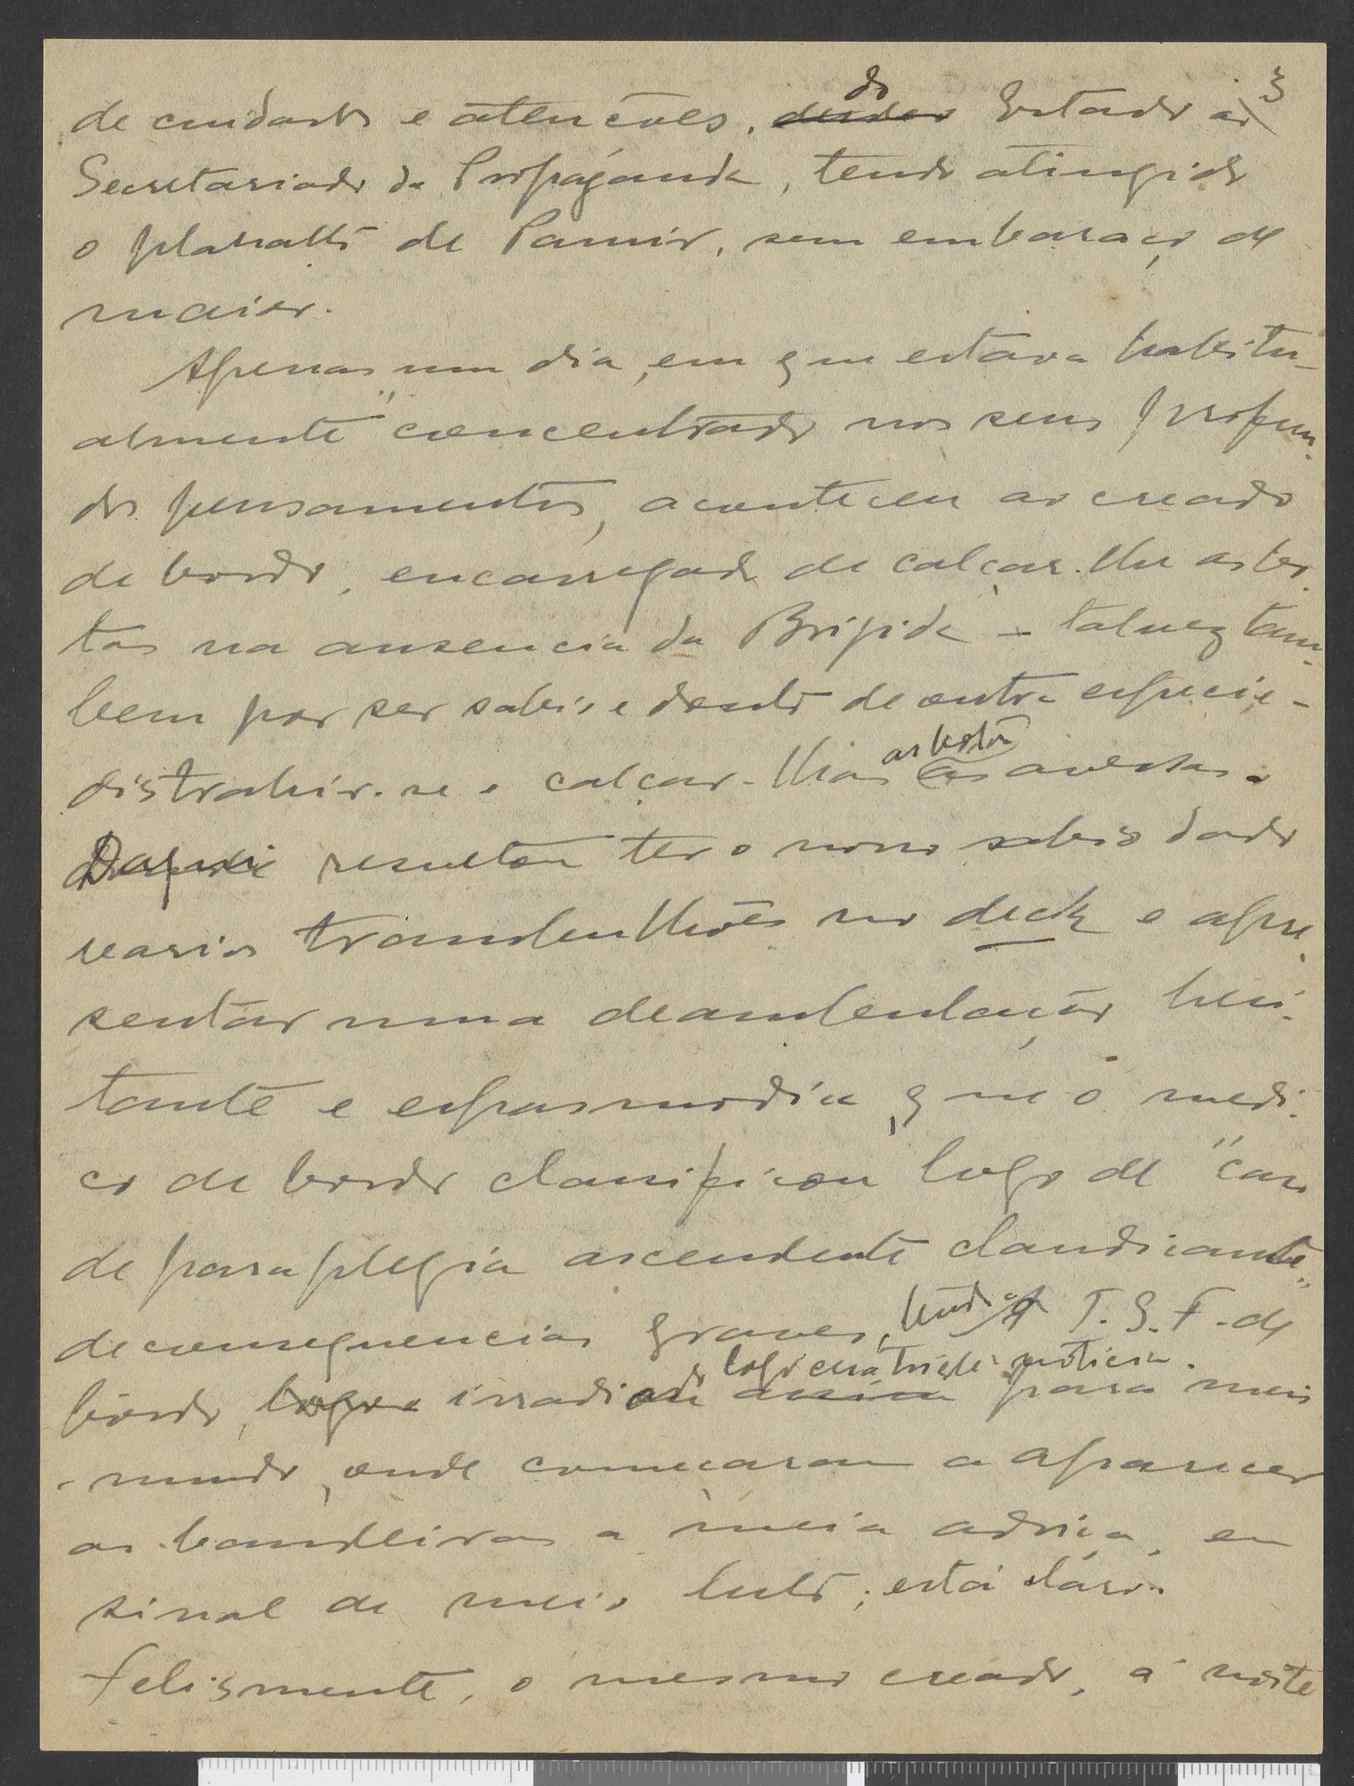 3
de cuidados e atenções, do Estado ao
Secretariado da Propáganda, tendo atingido
o planalto de Pamir, sem embaraço de
maior.
Apenas um dia, em que estava "habitu-
almente" concentrado nos seus profun-
dos pensamentos, aconteceu ao creado
de bordo, encarregado de calçar-lhe as bo-
tas na ausencia da Brigida – talvez tam-
bem por ser sabio e douto de outra especie –
distrahir-se e calçar-lhas as botas ás avessas.
Daqui resultou ter o nosso sabio dado
varios trambulhões no deck e apre-
sentar uma deambulação hesi-
tante e espasmodica, que o medi-
co de bordo classificou logo de "caso
de paraplegia ascendente claudicante"
de consequencias graves, tendo a T. S. F. de
bordo, irradiado logo esta triste noticia para meio
mundo, onde começaram a aparecer
as bandeiras a meia adriça, em
sinal de meio luto; está claro.
Felismente, o mesmo creado, á noite